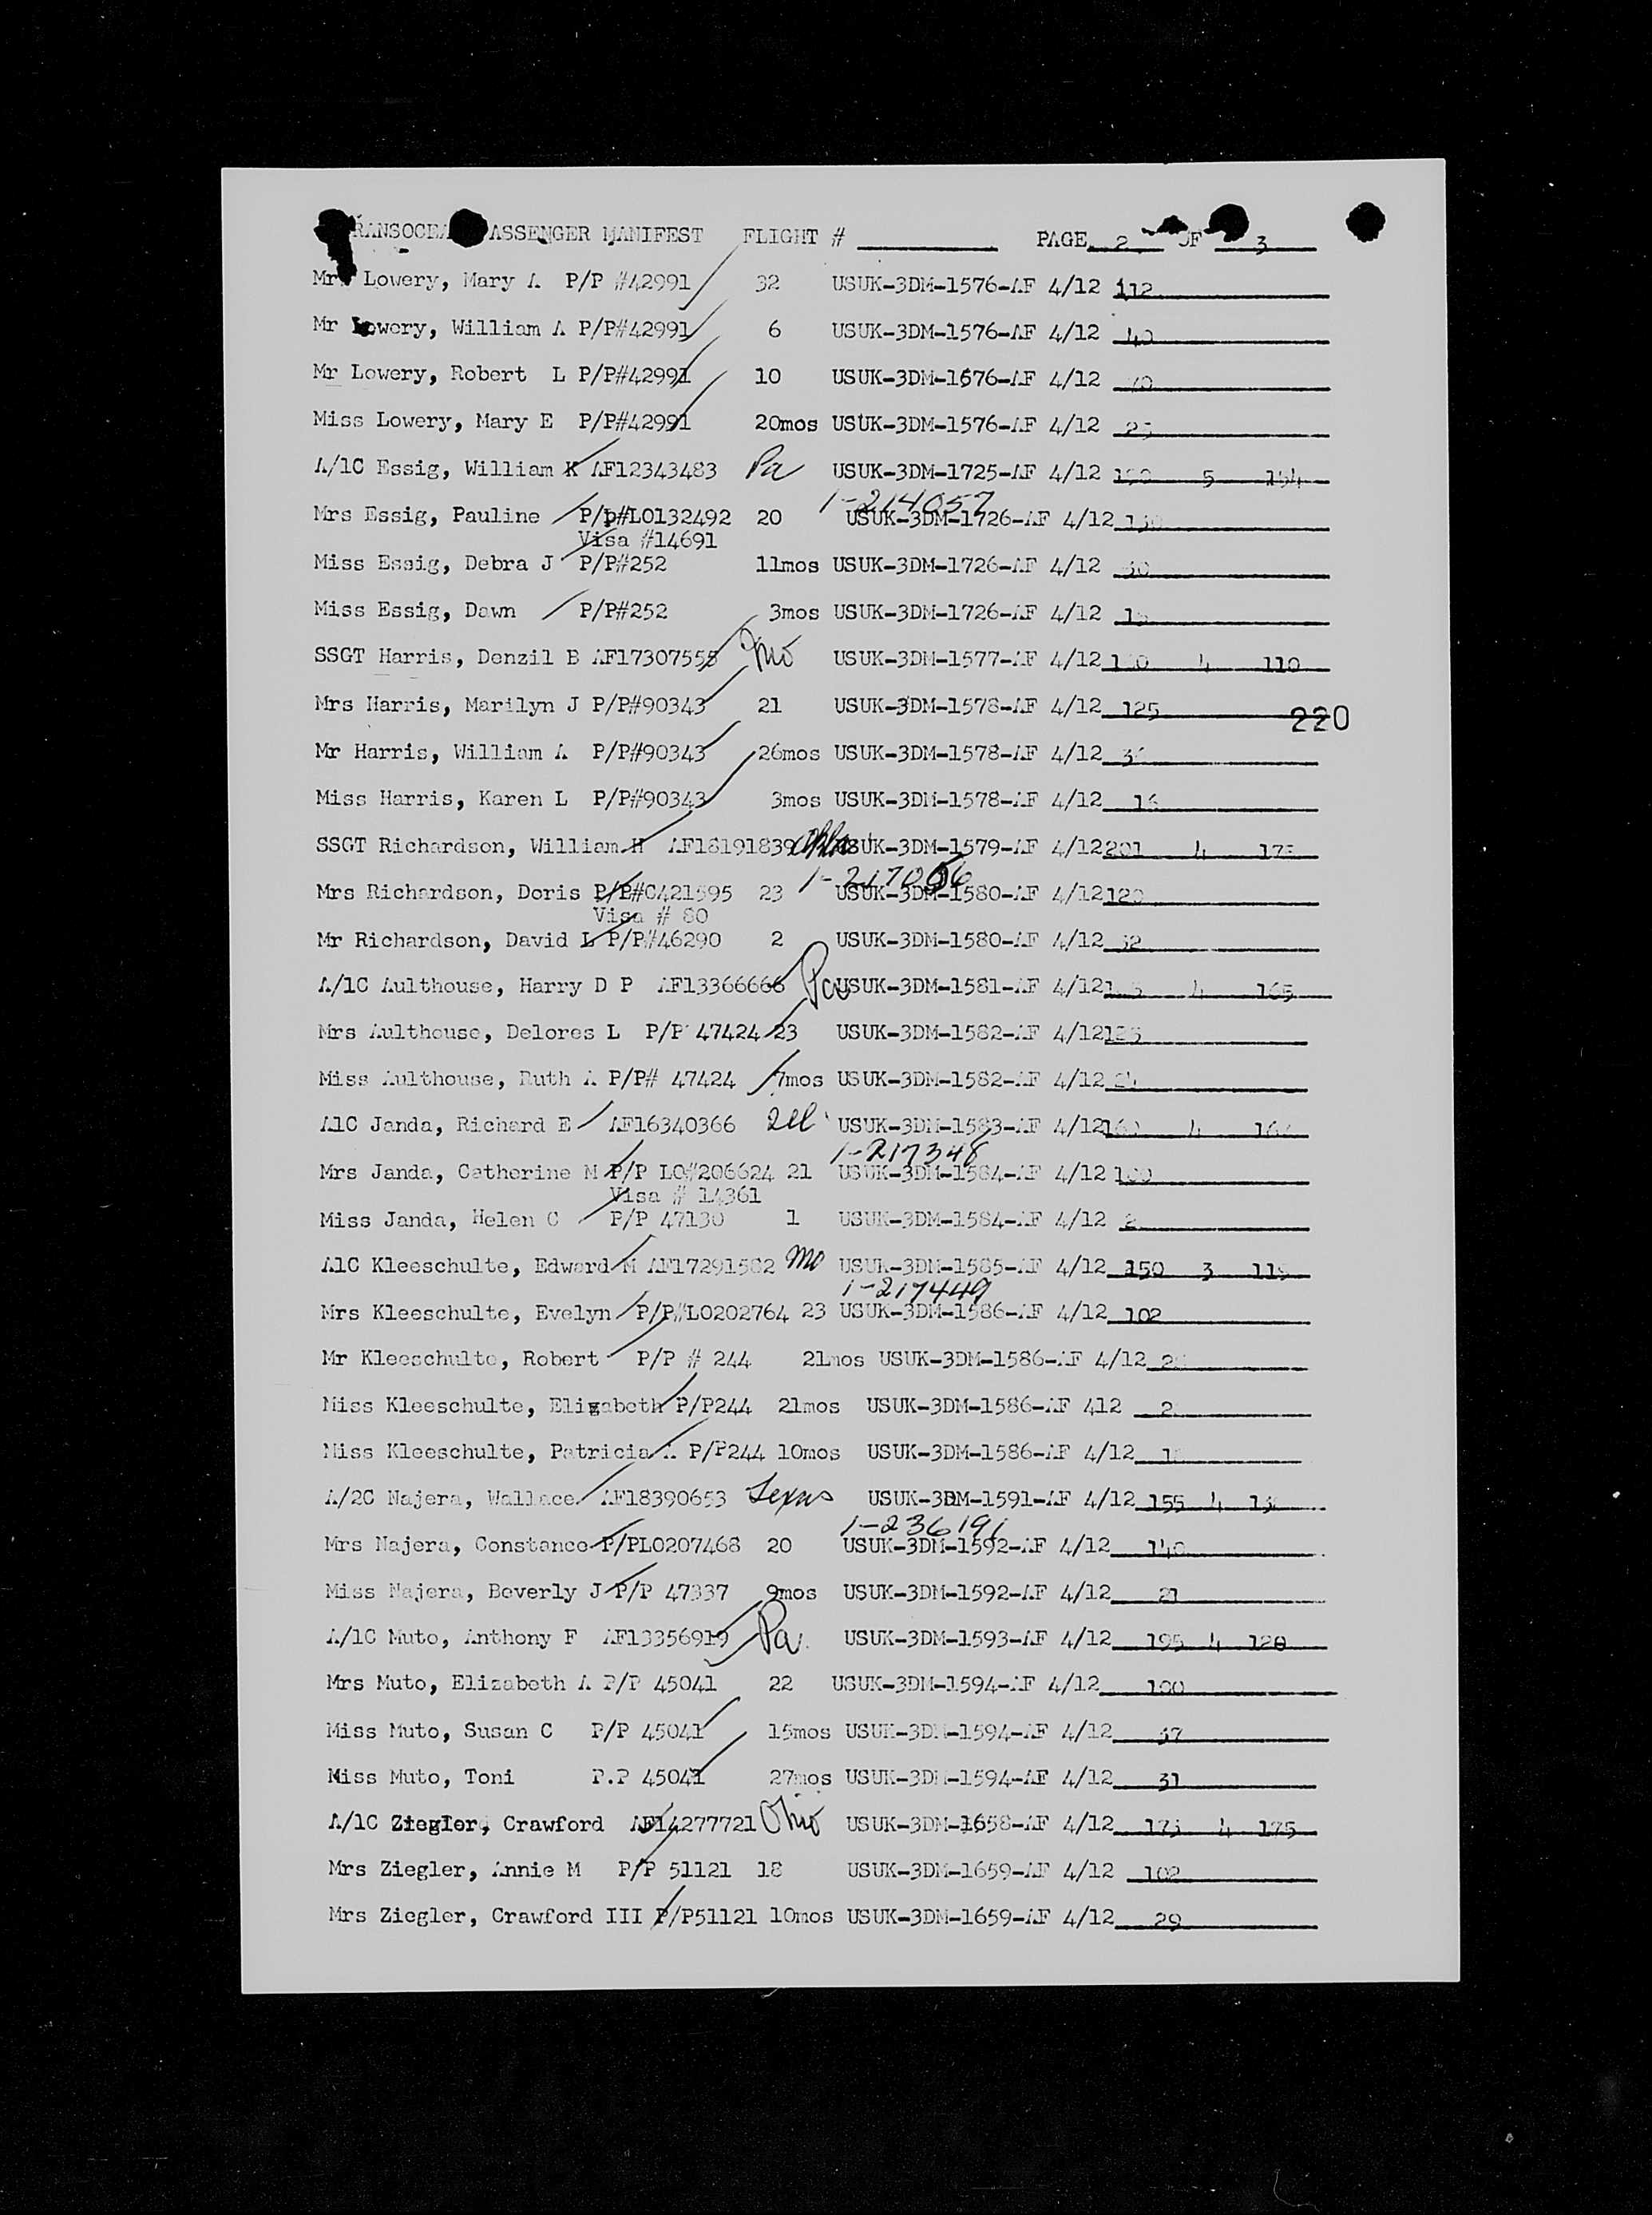 TRANSOCEAN PASSENGER MANIFEST FLIGHT # PAGE 2 OF 3
Lowery, Mary A P/P #42991 32 USUK-3DM-1576-AF 4/12 112
Mr Lowery, William A P/P#42991 6 USUK-3DM-1576-AF 4/12 40
Mr Lowery, Robert L P/P#42991 10 USUK-3DM-1576-AF 4/12
Miss Lowery, Mary E P/P#42991 20mos USUK-3DM-1576-AF 4/12
A/1C Essig, William K AF12343483 Pa USUK-3DM-1725-AF 4/12 5 154
1-214057
Mrs Essig, Pauline P/p#LO132492 20 USUK-3DM-1726-AF 4/12
Visa #14691
Miss Essig, Debra J P/P#252 11mos USUK-3DM-1726-AF 4/12
Miss Essig, Dawn P/P#252 3mos USUK-3DM-1726-AF 4/12
SSGT Harris, Denzil B AF17307555 Mo USUK-3DM-1577-AF 4/12 4 110
Mrs Harris, Marilyn J P/P#90343 21 USUK-3DM-1578-AF 4/12 125
220
Mr Harris, William A P/P#90343 26mos USUK-3DM-1578-AF 4/12
Miss Harris, Karen L P/P#90343 3mos USUK-3DM-1578-AF 4/12
SSGT Richardson, William H AF18191839 Okla USUK-3DM-1579-AF 4/12 201 4
1-217066
Mrs Richardson, Doris P/P#C421595 23 USUK-3DM-1580-AF 4/12 120
Visa # 80
Mr Richardson, David L P/P#46290 2 USUK-3DM-1580-AF 4/12 32
A/1C Aulthouse, Harry D P AF13366666 Pa USUK-3DM-1581-AF 4/12 4 165
Mrs Aulthouse, Delores L P/P 47424 23 USUK-3DM-1582-AF 4/12
Miss Aulthouse, Ruth A P/P# 47424 7mos USUK-3DM-1582-AF 4/12
A1C Janda, Richard E AF16340366 Ill USUK-3DM-1583-AF 4/12 4
1-217348
Mrs Janda, Catherine M P/P LO#206624 21 USUK-3DM-1584-AF 4/12 100
Visa # 14361
Miss Janda, Helen C P/P 47130 1 USUK-3DM-1584-AF 4/12
A1C Kleeschulte, Edward M AF17291582 Mo USUK-3DM-1585-AF 4/12 150 3
1-217449
Mrs Kleeschulte, Evelyn P/P#LO202764 23 USUK-3DM-1586-AF 4/12 102
Mr Kleeschulte, Robert P/P # 244 21mos USUK-3DM-1586-AF 4/12
Miss Kleeschulte, Elizabeth P/P244 21mos USUK-3DM-1586-AF 412
Miss Kleeschulte, Patricia A P/P244 10mos USUK-3DM-1586-AF 4/12
A/2C Najera, Wallace AF18390653 Texas USUK-3DM-1591-AF 4/12 155 4
1-236191
Mrs Najera, Constance P/PLO207468 20 USUK-3DM-1592-AF 4/12 140
Miss Najera, Beverly J P/P 47337 9mos USUK-3DM-1592-AF 4/12 21
A/1C Muto, Anthony F AF13356919 Pa. USUK-3DM-1593-AF 4/12 195 4 120
Mrs Muto, Elizabeth A P/P 45041 22 USUK-3DM-1594-AF 4/12 100
Miss Muto, Susan C P/P 45041 15mos USUK-3DM-1594-AF 4/12 37
Miss Muto, Toni P.P 45041 27mos USUK-3DM-1594-AF 4/12 31
A/1C Ziegler, Crawford AF14277721 Ohio USUK-3DM-1658-AF 4/12 4 175
Mrs Ziegler, Annie M P/P 51121 18 USUK-3DM-1659-AF 4/12 102
Mrs Ziegler, Crawford III P/P51121 10mos USUK-3DM-1659-AF 4/12 29